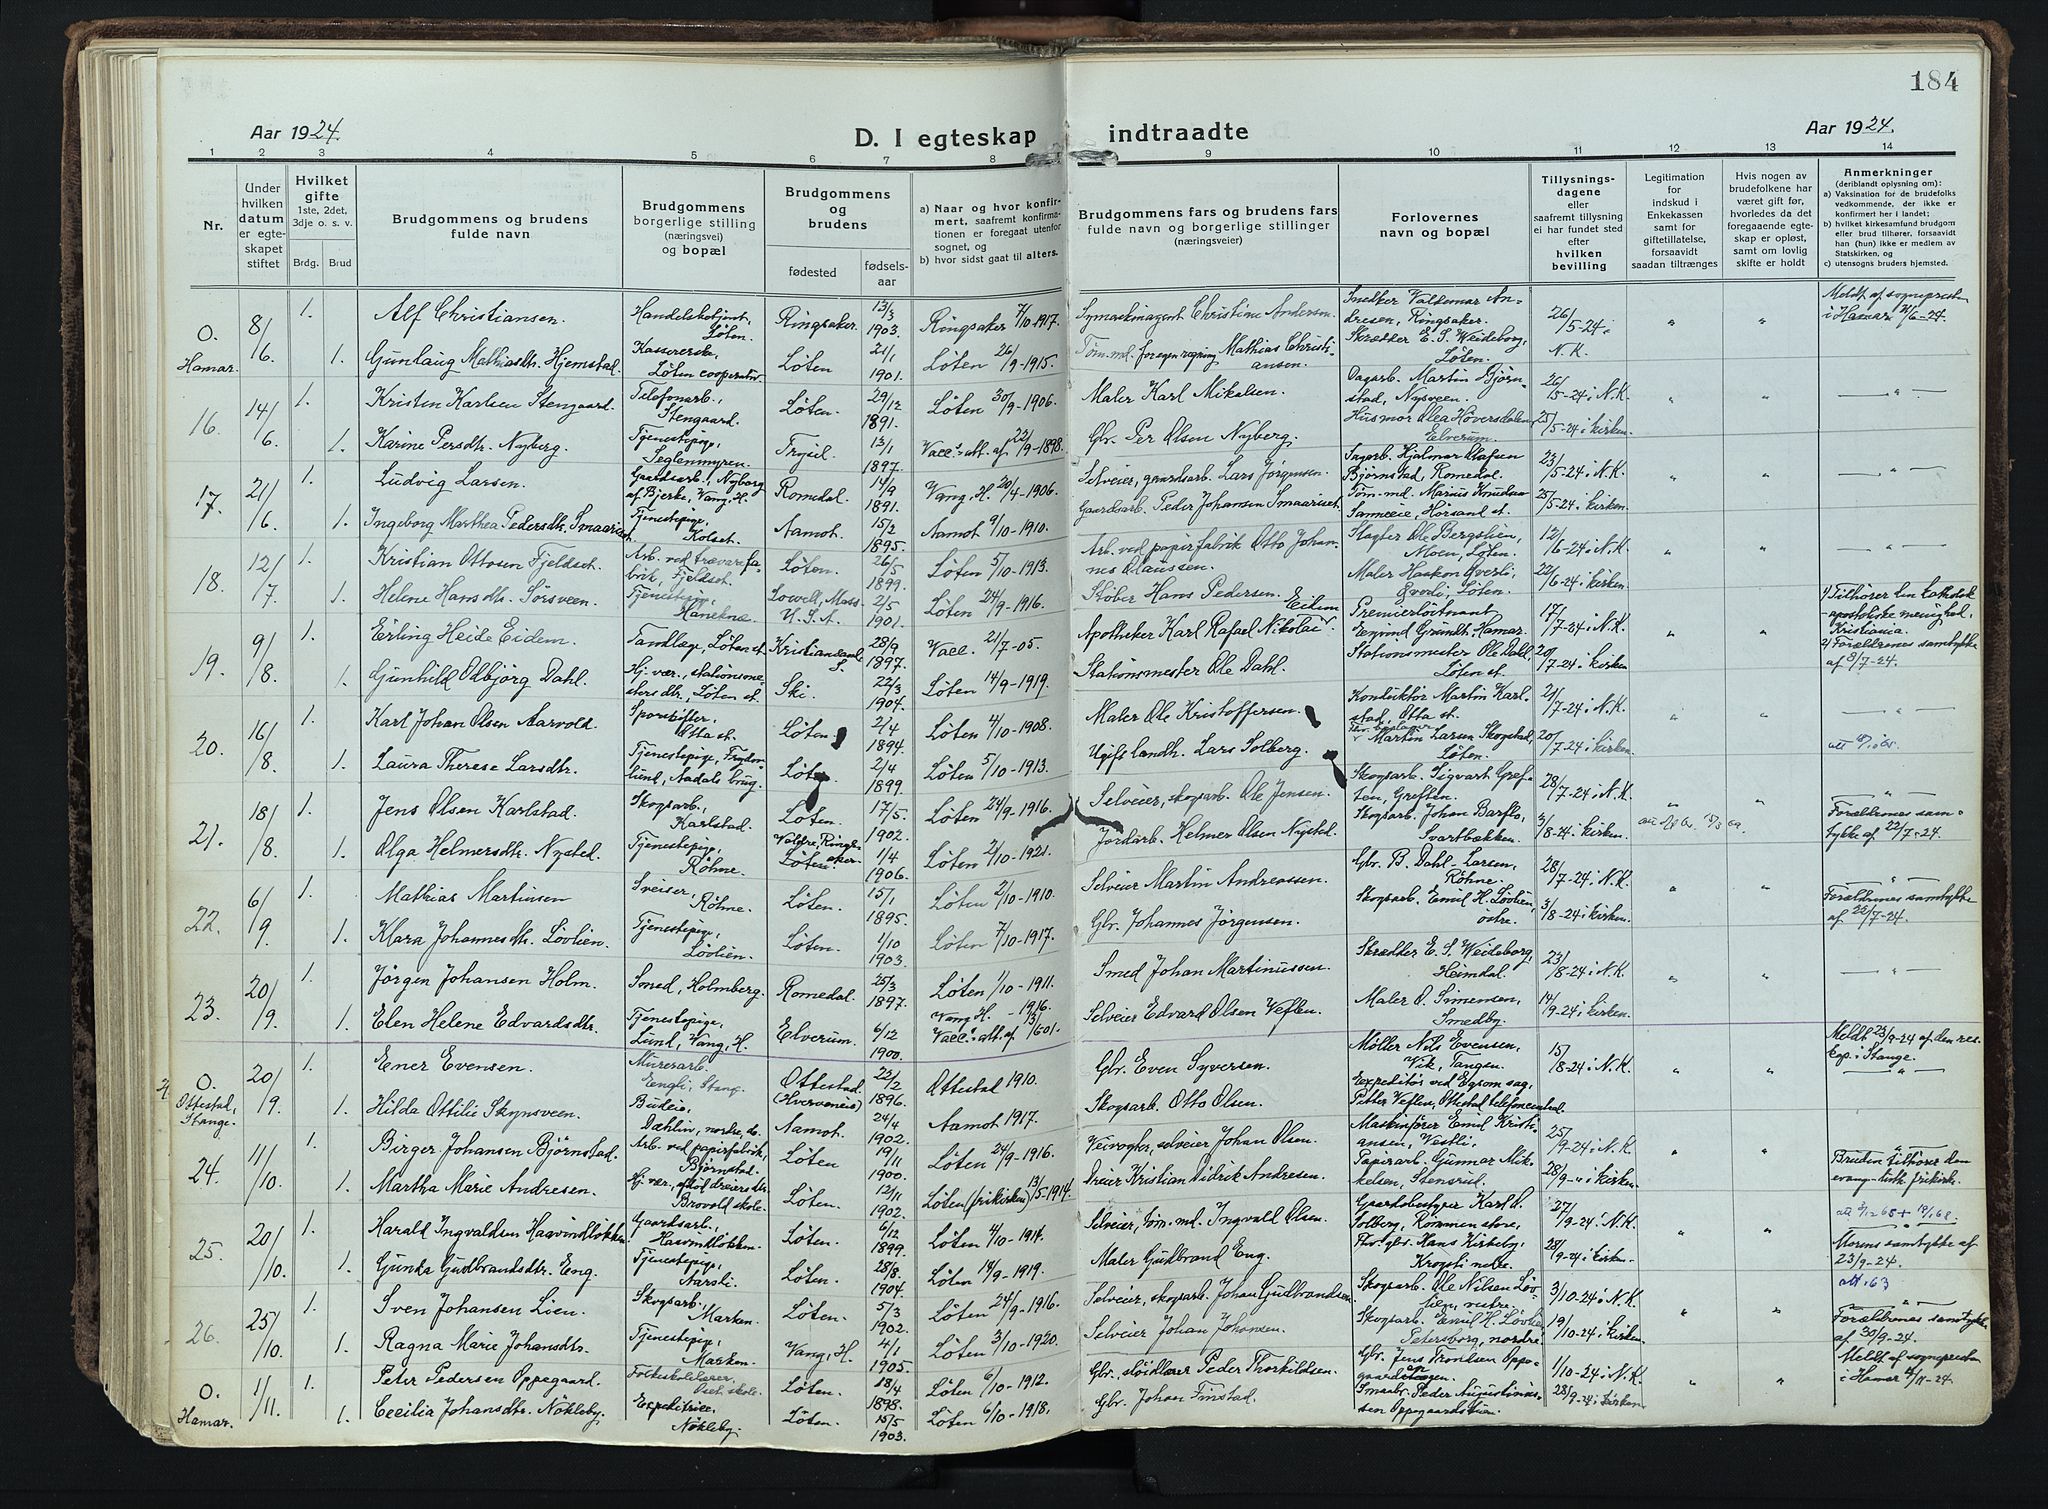 184
Aar 1924.
D. I egteskap indtraadte
Aar 1924.
1 2 3 4 5 6 7 8 9 10 11 12 13 14
Nr.
Under hvilken datum er egteskapet stiftet
Hvilket gifte 1ste, 2det, 3dje o. s. v.
Brdg. Brud
Brudgommens og brudens fulde navn
Brudgommens borgerlige stilling (næringsvei) og bopæl
Brudgommens og brudens
fødested
fødsels-aar
a) Naar og hvor konfirmert, saafremt konfirmationen er foregaat utenfor sognet, og
b) hvor sidst gaat til alters.
Brudgommens fars og brudens fars fulde navn og borgerlige stillinger (næringsveier)
Forlovernes navn og bopæl
Tillysningsdagene eller saafremt tillysning ei har fundet sted efter hvilken bevilling
Legitimation for indskud i Enkekassen samt for giftetillatelse, forsaavidt saadan tiltrænges
Hvis nogen av brudefolkene har været gift før, hvorledes da det foregaaende egteskap er opløst, samt om lovlig skifte er holdt
Anmerkninger (deriblandt oplysning om):
a) Vaksination for de brudefolks vedkommende, der ikke er konfirmert her i landet;
b) hvilket kirkesamfund brudgom eller brud tilhører, forsaavidt han (hun) ikke er medlem av Statskirken, og
c) utensogns bruders hjemsted.
O. Hamar. 8/6 1. Alf Christiansen. Handelsbetjent, Løten. Ringsaker. 13/3 1903. Ringsaker 7/10-1917. Symaskinagent Christian Andersen. Snedker Valdemar Andresen, Ringsaker. 26/5-24 i N.K. Meldt af sognepresten i Hamar
1. Gunlaug Mathiasdtr. Hjemstad. Kassererske, Løten cooperativ. Løten 21/1 1901. Løten 26/9-1915. Tøm.md. for egen regning Mathias Christiansen. Skrædder E. S. Weideborg, Løten.
16. 14/6 1. Kristen Karlsen Stengaard. Telefonarb., Stengaard. Løten. 29/12 1891. Løten 30/9-1906. Maler Karl Mikalsen. Dagarb. Martin Bjørnstad, Nysvéen. 26/5-24 i N.K.
1. Karine Persdtr. Nyberg. Tjenestepige, Seglenmyren. Trysil. 13/1 1897. Vacc. att. af 22/9-1898. Gbr. Per Olsen Nyberg. Husmor Olea Hoversdalen, Elverum. 25/5-24 i kirken.
17. 21/6 1. Ludvig Larsen. Gaardsarb., Nyborg af Bjerke, Vang, H. Romedal. 14/9 1891. Vang, H. 20/4-1906. Selveier, gaardsarb. Lars Jørgensen. Sagarb. Hjalmar Olafsen Bjørnstad, Romedal. 23/5-24 i N.K.
1. Ingeborg Marthea Pedersdtr. Smaariset. Tjenestepige, Kolset. Aamot. 15/2 1895. Aamot 9/10-1910. Gaardsarb. Peder Johansen Smaariset. Tøm.md. Marius Knudsen Sanneeie, Hørsand st. 25/5-24 i kirken.
18. 12/7 1. Kristian Ottosen Fjeldset. Arb. ved trævarefabrik, Fjeldset. Løten. 26/5 1899. Løten 5/10-1913. Arb. ved papirfabrik Otto Johannes Olaussen. Slagter Ole Bergslien, Moen, Løten. 12/6-24 i N.K.
1. Helene Hansdtr. Sørsveen. Tjenestepige, Hanekne. Lowell, Mass U.S.A. 2/5 1901. Løten 24/9-1916. Støber Hans Pedersen. Maler Haakon Øverli, Løten. 22/6-24 i kirken.
19. 9/8 1. Erling Heide Eidem. Tandlæge, Løten st. Kristiansand S. 28/9 1897. Vacc. 21/7-05. Apotheker Karl Rafael Nikolai Eidem. Premierløitnant Eyvind Grundt, Hamar. 17/7-24 i N.K. 1) Tilhører den katolsk apostoliske menighed, Kristiania.
1. Gunhild Olbjørg Dahl. Hj. vær., stationsmestersdtr., Løten st. Ski. 22/3 1904. Løten 14/9-1919. Stationsmester Ole Dahl. Stationsmester Ole Dahl, Løten st. 20/7-24 i kirken 2) Forældrenes samtykke af 8/7-24.
20. 16/8 1. Karl Johan Olsen Aarvold. Sporskifter, Otta st. Løten 2/4 1894. Løten 4/10-1908. Maler Ole Kristoffersen. Konduktør Martin Karlstad, Otta st. 21/7-24 i N.K.
1. Laura Therese Larsdtr. Tjenestepige, Frydenlund, Aadals brug. Løten. 2/4 1899. Løten 5/10-1913. Ugift landh. Lars Solberg. Martin Larsen Skogstad, Løten. 20/7-24 i kirken.
21. 18/8 1. Jens Olsen Karlstad. Skogsarb., Karlstad. Løten. 17/5. 1902. Løten 24/9-1916. Selveier, skogsarb. Ole Jensen. Skogsarb. Sigvart Greften, Greften. 28/7-24 i N.K. Forældrenes samtykke af 22/7-24.
1. Olga Helmersdtr. Nysted. Tjenestepige, Røhne. Valdre, Ringsaker. Løten. 1/4 1906. Løten 2/10-1921. Jordarb. Helmer Olsen Nysted. Skogsarb. Johan Barflo, Svartbakken. 3/8-24 i kirken.
22. 6/9 1. Mathias Martinsen Sveiser, Røhne. Løten. 15/1 1895. Løten 2/10-1910. Selveier Martin Andreassen. Gbr. B. Dahl-Larsen, Røhne. 28/7-24 i N.K. Forældrenes samtykke af 22/7-24.
1. Klara Johannesdtr. Løvlien. Tjenestepige, Løvlien. Løten. 1/10 1903. Løten 7/10-1917. Gbr. Johannes Jørgensen. Skogsarb. Emil H. Løvlien, østre. 3/8-24 i kirken.
23. 20/9 1. Jørgen Johansen Holm. Smed, Holmberg. Romedal. 25/3 1897. Løten 1/10-1911. Smed Johan Martinussen. Skrædder E. S. Weideborg, Heimdal. 23/8-24 i N.K.
1. Elen Helene Edvardsdtr. Tjenestepige, Lund, Vang, H. Elverum. 6/12 1900. Vang H. -1916. Vacc. att. af 13/6 01. Selveier Edvard Olsen Veflen. Maler O. Simensen, Smedby. 14/9-24 i kirken.
O. Ottestad, Stange. 20/9 1. Ener Evensen. Murerarb. Engli, Stange. Ottestad (Hverveneie) 22/2 1896. Ottestad 1910. Gbr. Even Syversen. Møller Nils Evensen, Vik, Tangen. 15/8-24 i N.K. Meldt 23/9-24 af den res. kap. i Stange.
1. Hilda Ottilie Skynsveen. Budeie, Dæhlin, nordre, do. Aamot. 24/4 1902. Aamot 1917. Skogsarb. Otto Olsen. Expeditør ved Egsom sag, Petter Veflen, Ottestad telefoncentral.
24. 11/10. 1. Birger Johansen Bjørnstad. Arb. ved papirfabrik, Bjørnstad. Løten 19/11 1900. Løten 24/9-1916. Veivogter, selveier Johan Olsen. Maskinfører Emil Kristiansen, Vestli. 25/9-24 i N.K.
1. Martha Marie Andresen. Hj. vær., dreiersdtr. Brovold skole. Løten. 12/11 1902. Løten (frikirken) 13/5-1914. Dreier Kristian Didrik Andresen. Papirarb. Gunnar Mikkelsen, Stensrud. 28/9-" i kirken. Bruden tilhører den evang.-luth. frikirke.
25. 20/10. 1. Harald Ingvaldsen Haavindløkken. Gaardsarb., Haavindløkken. Løten. 6/12 1899. Løten 4/10-1914. Selveier, tøm.md. Ingvald Olsen. Gaardsbestyrer Karl O. Solberg, Rommen store, 27/9-24 i N.K.
1. Gunda Gudbrandsdtr. Eng. Tjenestepige, Aarsli. Løten. 28/8. 1904. Løten 14/9-1919. Maler Gudbrand Eng. Fhv. gbr. Hans Kirkeby, Krogsti nedre. 28/9-24 i kirken. Morens samtykke af 23/9-24. att. 63
26. 25/10. 1. Sven Johansen Lien. Skogsarb., Marken. Løten. 5/3 1902. Løten 24/9-1916. Selveier, skogsarb. Johan Gudbrandsen. Skogsarb. Ole Nilsen Løvlien, vestre. 3/10-24 i N.K. Forældrenes samtykke af 30/9-24.
1. Ragna Marie Johansdtr. Tjenestepige, Marken. Vang, H. 4/1 1905. Løten 3/10-1920. Selveier Johan Johansen. Skogsarb. Emil H. Løvlien Petersborg, nordre 19/10-24 i kirken.
O. Hamar. 1/11. 1. Peter Pedersen Oppegaard. Folkeskolelærer, Oset skole. Løten. 18/4 1898. Løten 6/10-1912. Gbr. sløidlærer Peder Thorkildsen. Gbr. Jens Trondsen Oppegaardshagen. 1/10-24 i N.K. Meldt af sognepresten i Hamar
1. Cecilia Johansdtr. Nøkleby. Expeditrice, Nøkleby. Løten. 15/5 1903. Løten 6/10-1918. Gbr. Johan Finstad. Smaabr. Peder Augustinussen Oppegaardstuen. 28/9-24 i kirken